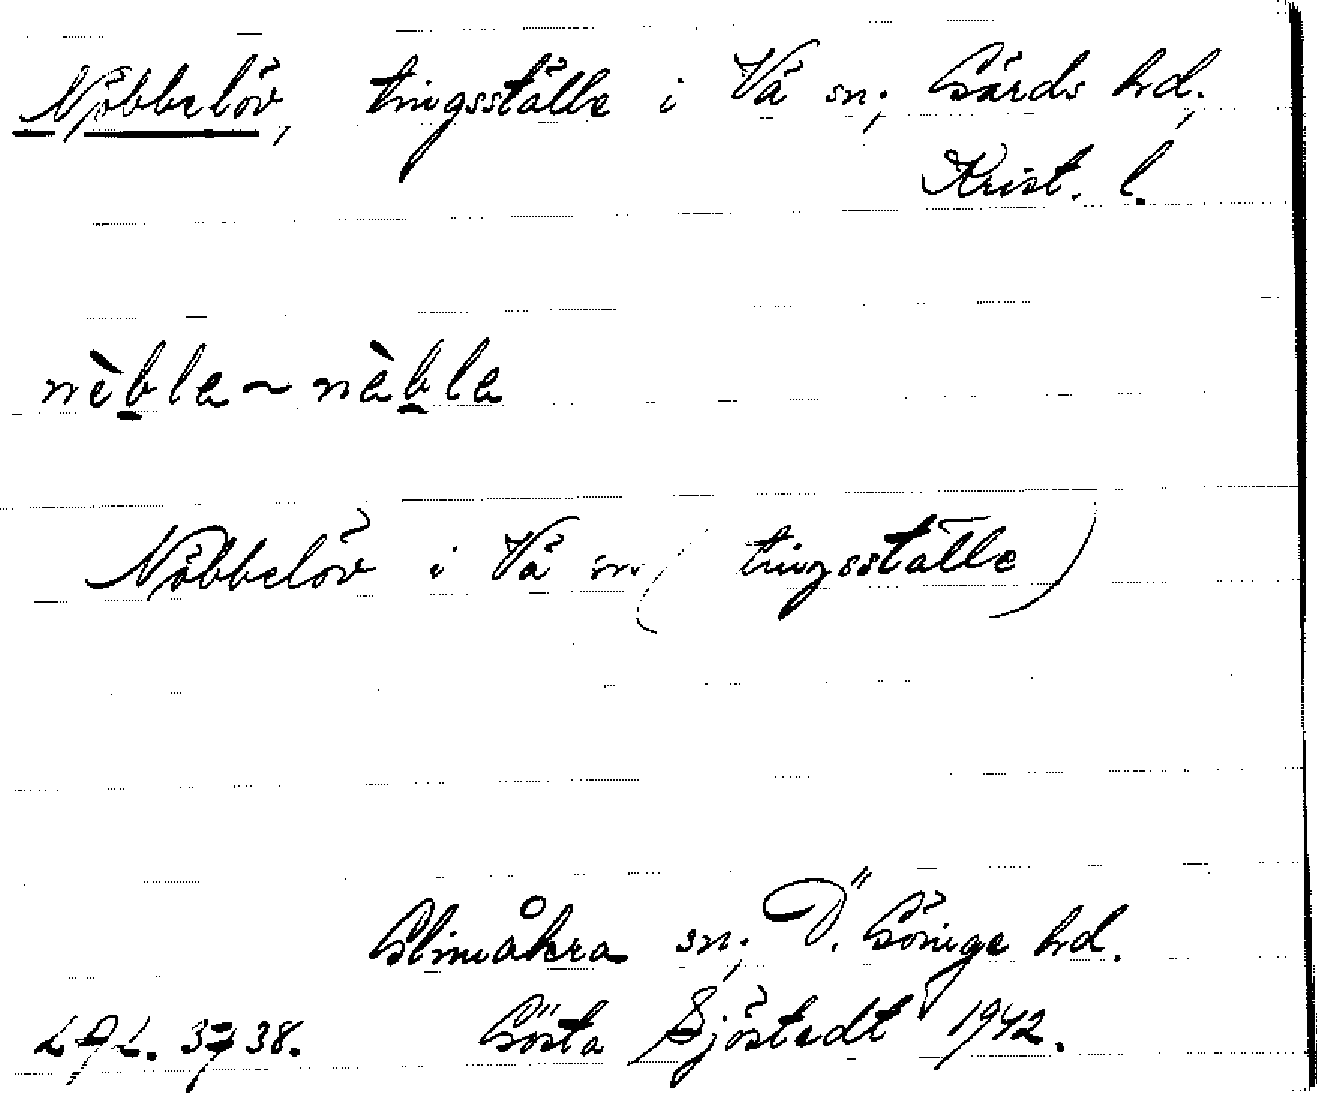 Nöbbelöv, tingsställe i Vä sn; Gärds hd.,
Krist. l.
nèbla ~ nàbla
Nöbbelöv i Vä sn (tingsställe)
Glimåkra sn; Ö. Göinge hd.
LAL. 3738. Gösta Sjöstedt 1942.